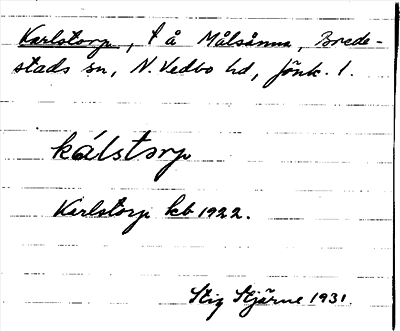 Karlstorp, t å Målsånna, Brede-
stads sn, N. Vedbo hd, Jönk. l.
kálstorp
Karlstorp kb 1922.
Stig Stjärne 1931.